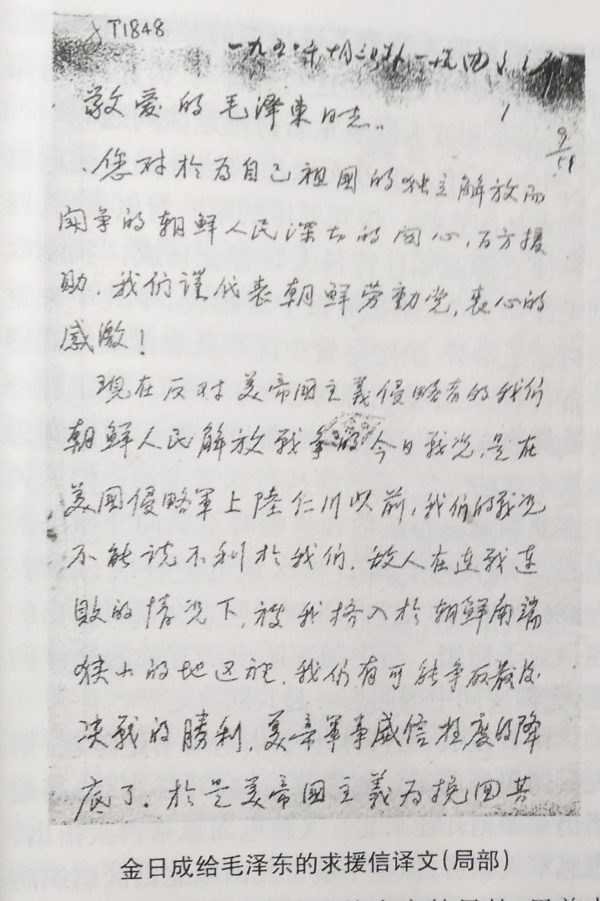 T1848
敬爱的毛泽東同志。
1
9/51
您对於为自己祖國的独立解放而
闘争的朝鲜人民深切的関心，百方援
助，我们谨代表朝鲜劳動党，衷心的
感激！
现在反对美帝國主義侵略者的我们
朝鲜人民解放戰争的今日戰况，是在
美國侵略軍上陸仁川以前，我们的戰况
不能说不利於我们，敌人在连戰连
败的情况下，被我挤入於朝鲜南端
狭小的地区裡，我们有可能争取最後
决戰的勝利，美帝軍事威信极度的降
底了。於是美帝國主義为挽回其
金日成给毛泽东的求援信译文(局部)